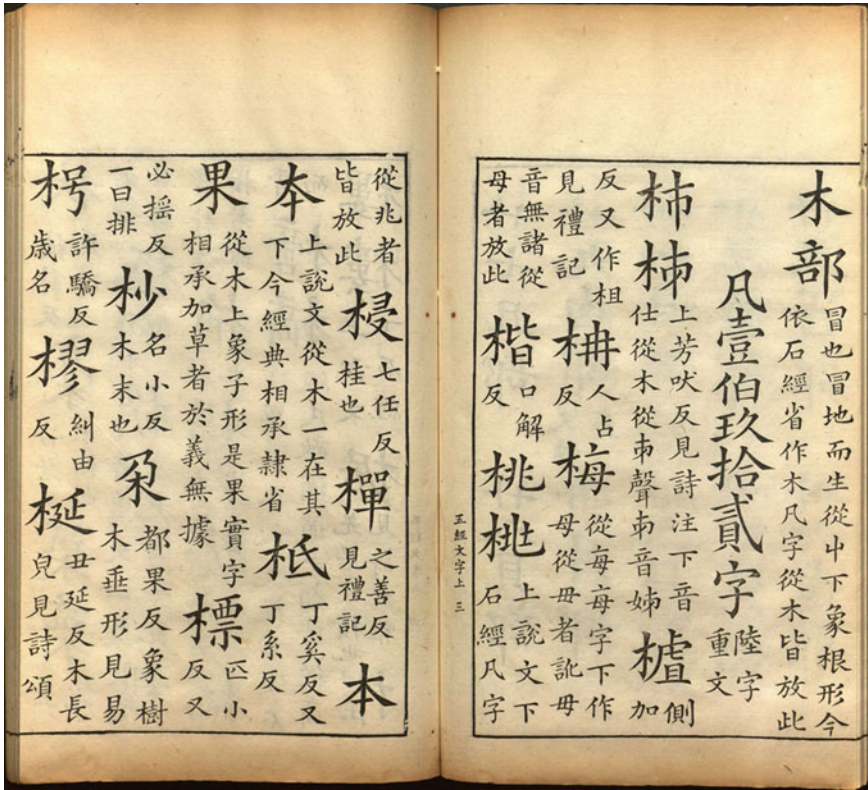 木部冒也冒地而生從屮下象根形今依石經省作木凡字從木皆放此
凡壹伯玖拾貳字陸字重文
柹𣐈上芳吠反見詩注下音仕從木從𠂔聲𠂔音姊樝側加
反又作柤見禮記𣑦人占反梅從每每字下作母從毋者訛母
音無諸從母者放此楷口解反桃𣑯上說文下石經凡字
五經文字上 三
從兆者皆放此梫七任反桂也樿之善反見禮記本
夲上說文從木一在其下今經典相承隷省柢丁奚反又丁系反
果從木上象子形是果實字相承加草者於義無據標匹小反又
必摇反一曰排杪名小反木末也朶都果反象樹木垂形見易
枵許驕反歳名樛糾由反梴丑延反木長皃見詩頌